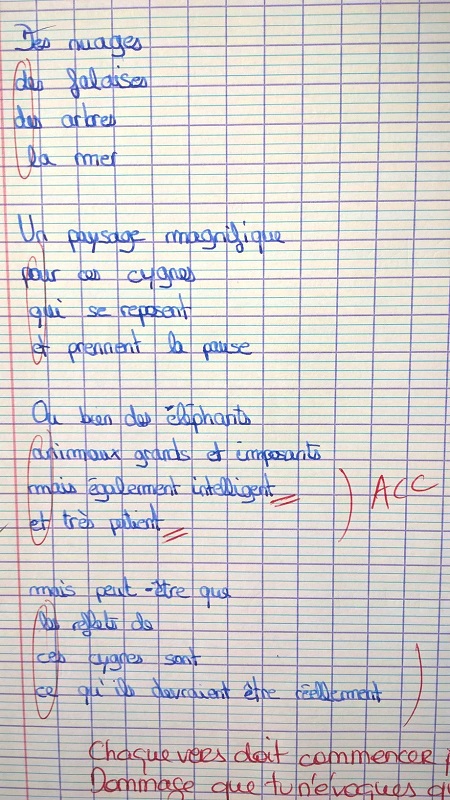 Des nuages
des falaises
des arbres
la mer
Un paysage magnifique
pour ces cygnes
qui se reposent
et prennent la pause
Ou bien des éléphants
animaux grands et imposants
mais également intelligent
et très patient
ACC
mais peut-être que
les reflets de
ces cygnes sont
ce qu'ils devraient être réellement
Chaque vers doit commencer
Dommage que tu n'évoques